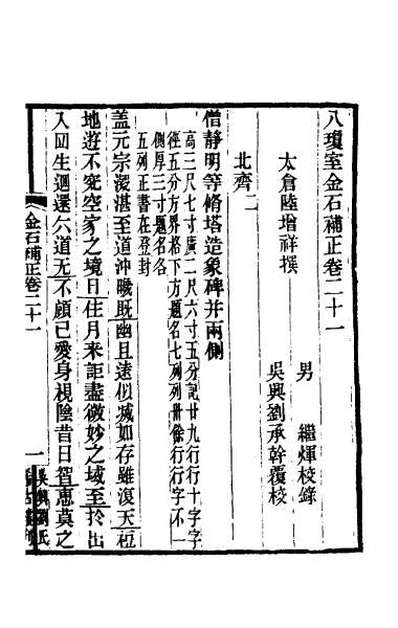 八瓊室金石補正卷二十一
太倉陸增祥撰
男　繼煇校錄
吳興劉承幹覆校
北齊二
僧靜明等脩塔造象碑并兩側
高二尺七寸廣二尺六寸五分記廿九行行十字字
徑五分方界格下方題名七列列卅餘行行字不一
側厚三寸題名各
五列正書在登封
蓋元宗湛湛至道沖曠既幽且遠似滅如存雖復天
地遊不究空家之境日住月来詎盡微妙之域至於出
入回生迴還六道无不顧已愛身視陰昔日智恵莫之
金石補正卷二十一
一
吳興劉氏